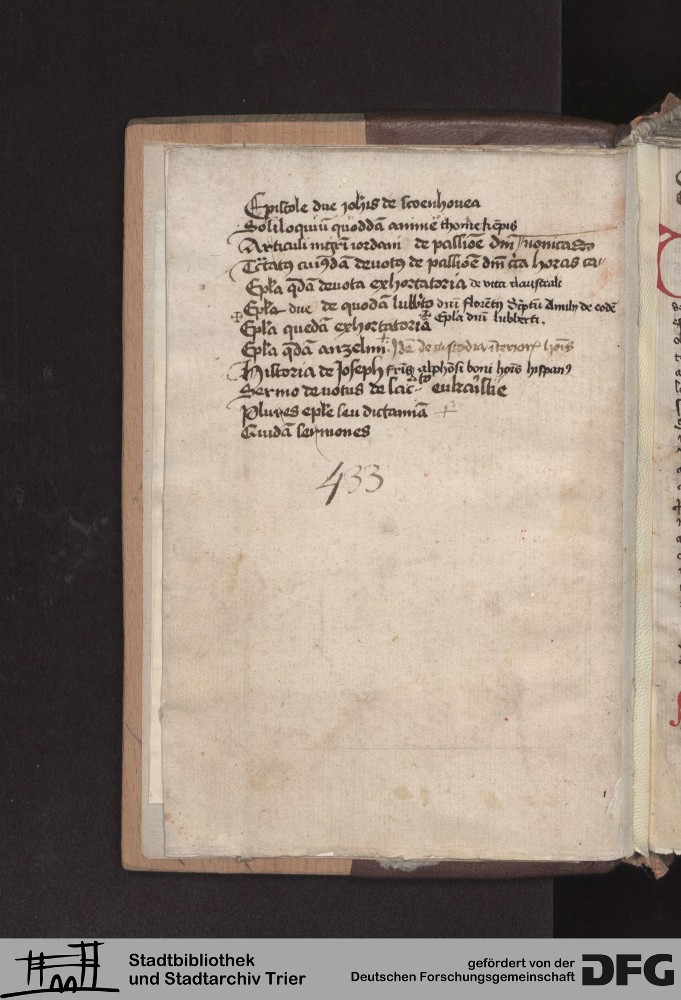 Epistole due ioh̄is de scoenhouea
Soliloquiū quoddā anime thome kēpis
Articuli mgr̄i iordani de passiōe dnī
Tc̄tatꝰ cuiꝰdā deuotꝰ de passiōe dnī ... horas
Epl̄a q̄dā deuota exhortatoria de vita claustrali
Epl̄a due de quodā lubb̄to dnī florētij ... de eodē
Epl̄a quedā exhortatoria Epl̄a dnī lubberti.
Epl̄a q̄dā anzelmi. Idē de custodia īterioris hoīs
Historia de Joseph fr̄is alphōsi boni hoīs hispanꝰ
Sermo deuotus de sac̄to eukaristie
Plures epl̄e seu dictamīa
Quidā sermones
433
Stadtbibliothek
und Stadtarchiv Trier
gefördert von der
Deutschen Forschungsgemeinschaft
DFG